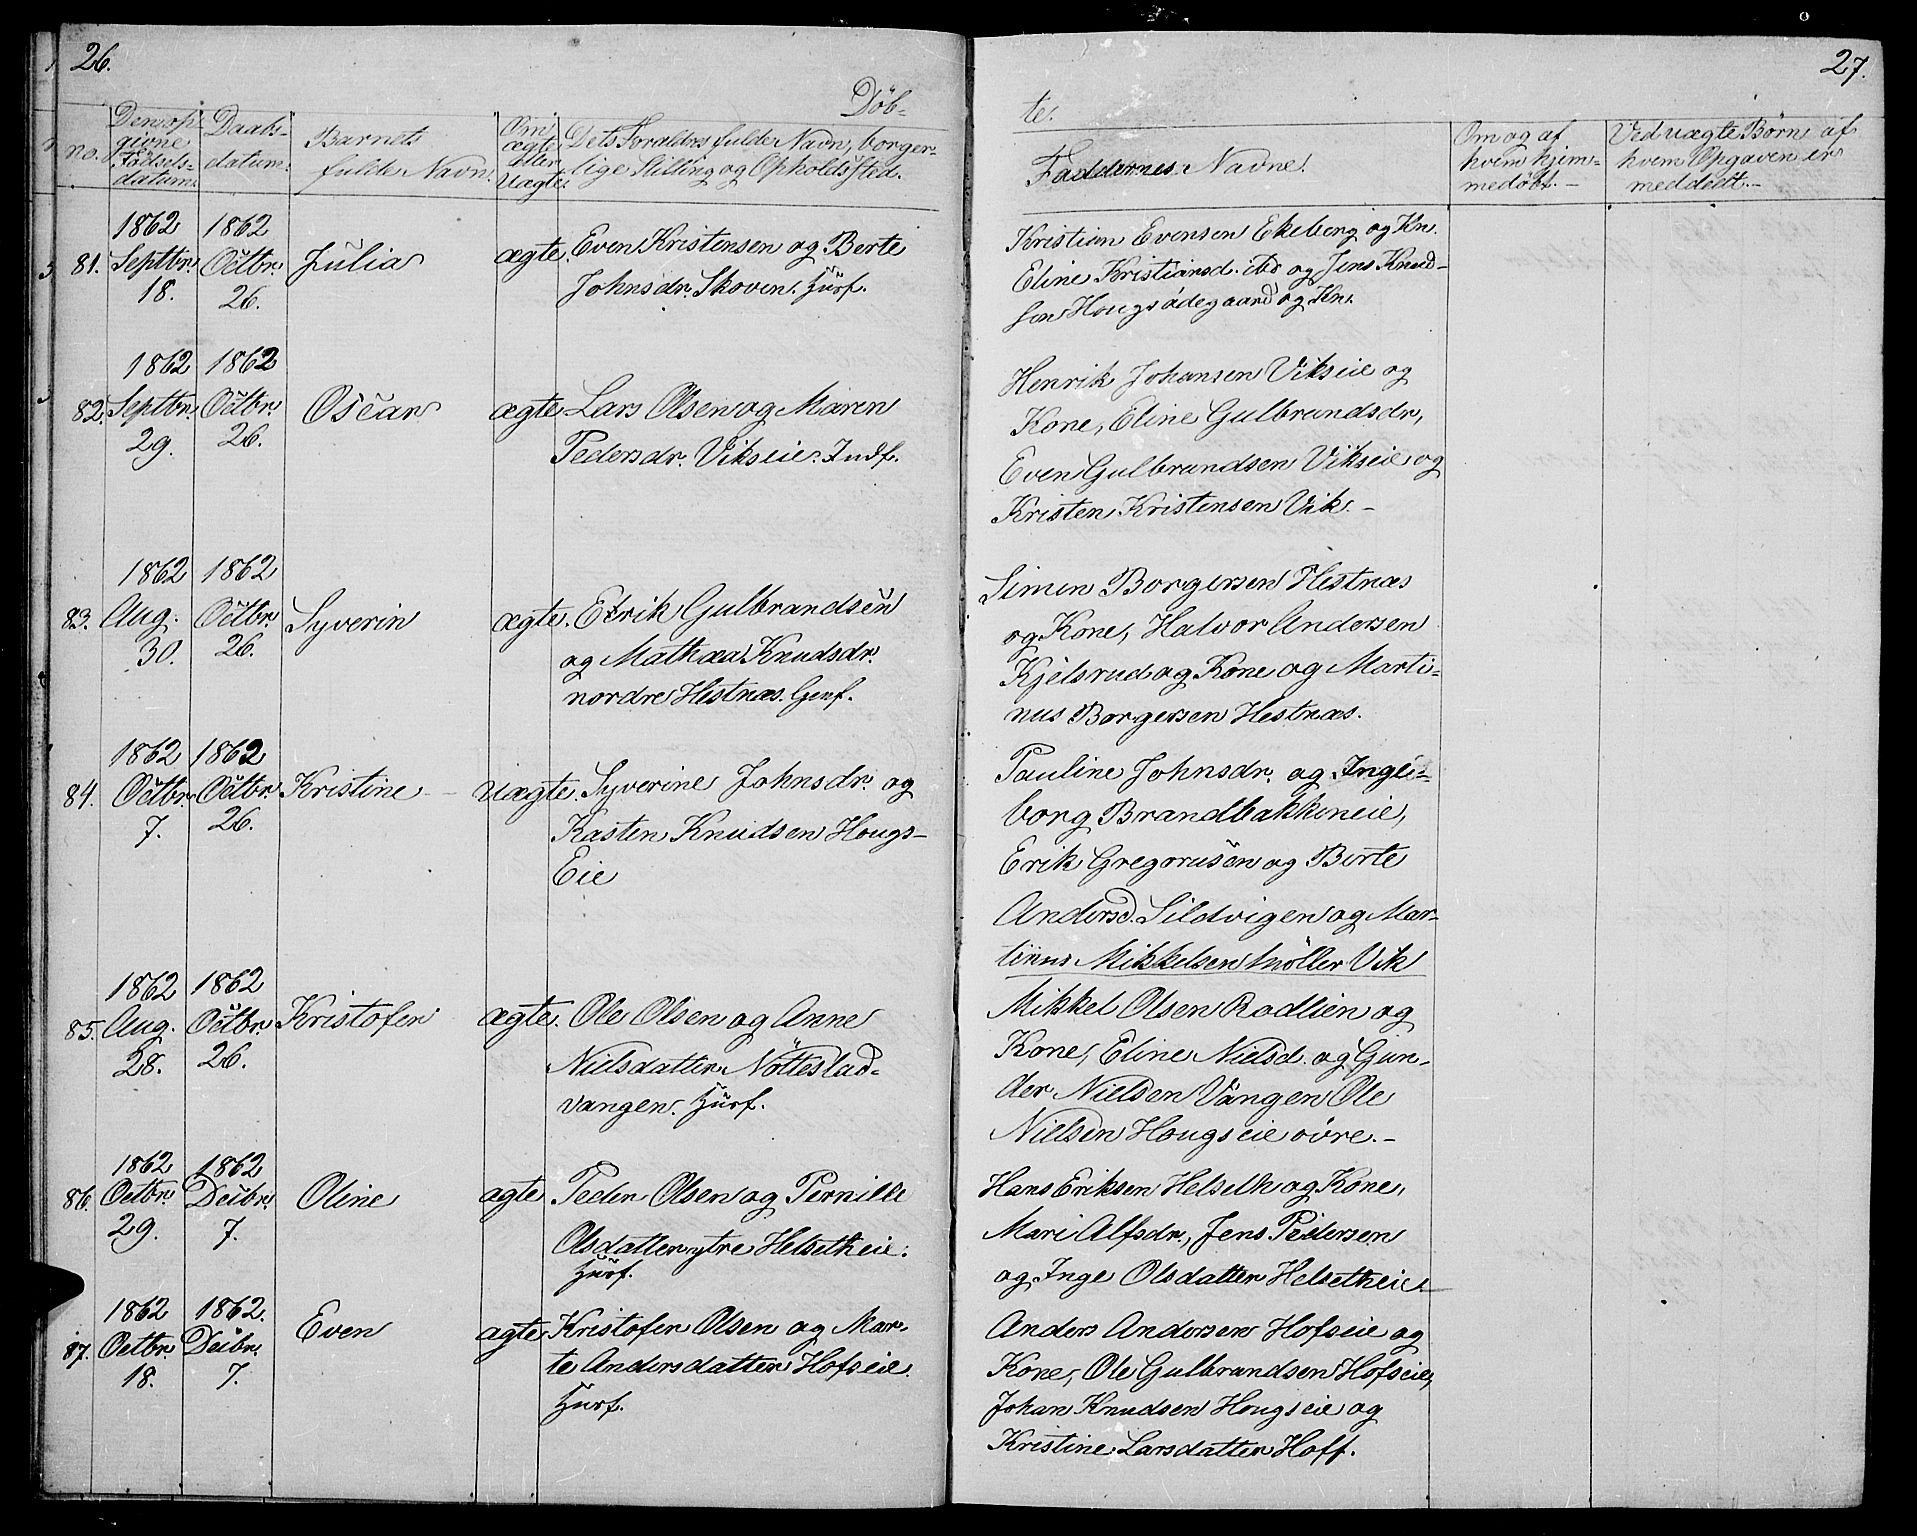 26.
Döb-
no.
Den op-
givne
Fødsels-
datum.
Daabs-
datum.
Barnets
fulde Navn.
Om
ægte
eller
Uægte.
Dets Forældres fulde Navn, borger-
lige Stilling og Opholdssted.
81.
1862
Septbr.
18.
1862
Octbr.
26.
Julia
ægte.
Even Kristensen og Berte
Johnsdr. Skoven. Husf.
82.
1862
Septbr.
29.
1862
Octbr.
26.
Oscar
ægte
Lars Olsen og Maren
Pedersdr. Vikseie. Indf.
83.
1862
Aug.
30.
1862
Octbr.
26.
Syverin
ægte.
Edrik Gulbrandsen
og Mathea Knudsdr.
nordre Hestnæs. Genf.
84.
1862
Octbr.
7.
1862
Octbr.
26.
Kristine
Uægte.
Syverine Johnsdr. og
Kasten Knudsen Hougs-
Eie
85.
1862
Aug.
28.
1862
Octbr.
26.
Kristofer
ægte.
Ole Olsen og Anne
Nielsdatter Nötteslad-
vangen. Husf.
86.
1862
Octbr.
29.
1862
Decbr.
7.
Oline
ægte
Peder Olsen og Pernille
Olsdatter ytre Helsetheie.
Husf.
87.
1862
Octbr.
18.
1862.
Decbr.
7.
Even
ægte
Kristofer Olsen og Mar-
te Andersdatter Hofseie.
Husf.
27.
te.
Faddernes Navne.
Om og af
hvem hjem-
medöbt.-
Ved uægte Börn af
hvem Opgaven er
meddelt.-
Kristian Evensen Ekeberg og Kn.
Eline Kristiansd. ibd og Jens Knud-
sen Hougsödegaard og Kn.
Henrik Johansen Vikseie og
Kone, Eline Gulbrandsdr,
Even Gulbrandsen Vikseie og
Kristen Kristensen Vik.-
Simen Borgersen Hestnæs
og Kone, Halvor Andersen
Kjelsrud og Kone og Marti-
nus Borgersen Hestnæs.
Pauline Johnsdr. og Inge-
borg Brandbakkeneie,
Erik Gregorusen og Berte
Andersd. Sildvigen og Mar-
tinus Mikkelsen Möller Vik
Mikkel Olsen Rodlien og
Kone, Eline Nielsd. og Gun-
der Nielsen Vangen Ole
Nielsen Hougseie övre.-
Hans Eriksen Helseth og Kone,
Mari Alfsdr., Jens Pedersen
og Inge Olsdatter Helsetheie
Anders Andersen Hofseie og
Kone, Ole Gulbrandsen Hofseie,
Johan Knudsen Hougseie og
Kristine Larsdatter Hoff.